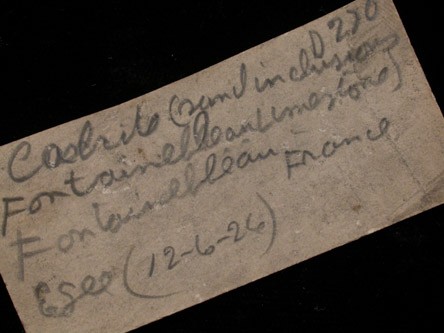 D 230
Calcite (sand inclusions
Fontainebleau Limestone)
Fontainebleau France
Egeo (12-6-26)